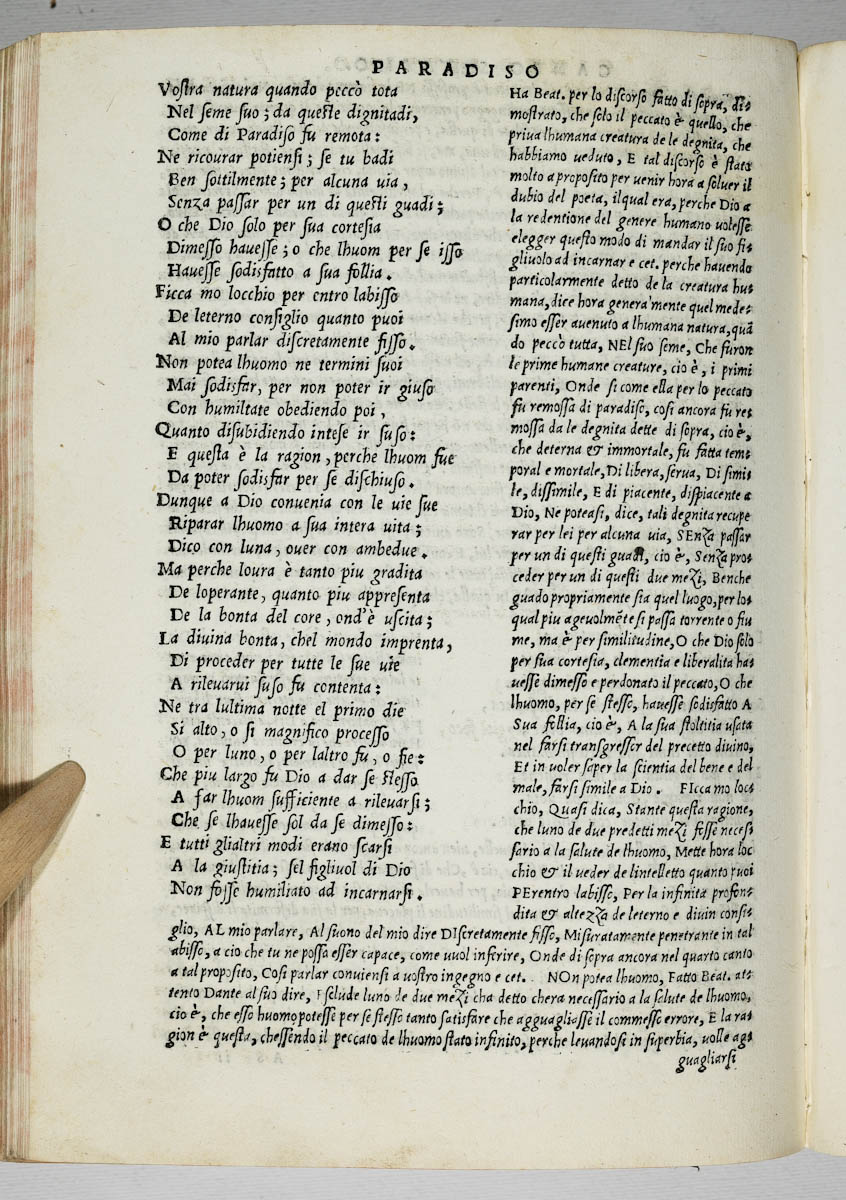 PARADISO
Vostra natura quando peccò tota
Nel seme suo; da queste dignitadi,
Come di Paradiso fu remota:
Ne ricourar potiensi; se tu badi
Ben sottilmente; per alcuna uia,
Senza passar per un di questi guadi;
O che Dio solo per sua cortesia
Dimesso hauesse; o che lhuom per se isso
Hauesse sodisfatto a sua follia.
Ficca mo locchio per entro labisso
De leterno consiglio quanto puoi
Al mio parlar discretamente fisso.
Non potea lhuomo ne termini suoi
Mai sodisfar, per non poter ir giuso
Con humiltate obediendo poi,
Quanto disubidiendo intese ir suso:
E questa è la ragion, perche lhuom fue
Da poter sodisfar per se dischiuso.
Dunque a Dio conuenia con le uie sue
Riparar lhuomo a sua intera uita;
Dico con luna, ouer con ambedue.
Ma perche loura è tanto piu gradita
De loperante, quanto piu appresenta
De la bonta del core, ond'è uscita;
La diuina bonta, chel mondo imprenta,
Di proceder per tutte le sue uie
A rileuarui suso fu contenta:
Ne tra lultima notte el primo die
Si alto, o si magnifico processo
O per luno, o per laltro fu, o fie:
Che piu largo fu Dio a dar se stesso
A far lhuom sufficiente a rileuarsi;
Che se lhauesse sol da se dimesso:
E tutti glialtri modi erano scarsi
A la giustitia; sel figliuol di Dio
Non fosse humiliato ad incarnarsi.
Ha Beat. per lo discorso fatto di sopra, di⸗
mostrato, che solo il peccato è quello, che
priua lhumana creatura de le degnita, che
habbiamo ueduto, E tal discorso è stato
molto a proposito per venir hora a soluer il
dubio del poeta, ilqual era, perche Dio a
la redentione del genere humano uolesse
elegger questo modo di mandar il suo fi⸗
gliuolo ad incarnar e cet. perche hauendo
particolarmente detto de la creatura hu⸗
mana, dice hora genera'mente quel mede⸗
simo esser auenuto a lhumana natura, quā
do peccò tutta, NEl suo seme, Che furon
le prime humane creature, cio è, i primi
parenti, Onde si come ella per lo peccato
fu remossa di paradiso, cosi ancora fu re⸗
mossa da le degnita dette di sopra, cio è,
che deterna & immortale, fu fatta tem⸗
poral e mortale, Di libera, serua, Di simi⸗
le, dissimile, E di piacente, dispiacente a
Dio, Ne poteasi, dice, tali degnita recupe
rar per lei per alcuna uia, SEnza passar
per un di questi guadi, cio è, Senza pro⸗
ceder per un di questi due mezi, Benche
guado propriamente sia quel luogo, per lo⸗
qual piu ageuolmēte si passa torrente o fiu
me, ma è per similitudine, O che Dio solo
per sua cortesia, clementia e liberalita ha⸗
uesse dimesso e perdonato il peccato, O che
lhuomo, per se stesso, hauesse sodisfatto A
Sua follia, cio è, A la sua stoltitia usata
nel farsi transgressor del precetto diuino,
Et in uoler saper la scientia del bene e del
male, farsi simile a Dio. FIcca mo loc⸗
chio, Quasi dica, Stante questa ragione,
che luno de due predetti mezi fosse neces⸗
sario a la salute de lhuomo, Mette hora loc
chio & il ueder de lintelletto quanto puoi
PErentro labisso, Per la infinita profon⸗
dita & altezza de leterno e diuin consi⸗
glio, AL mio parlare, Al suono del mio dire DIscretamente fisso, Misuratamente penetrante in tal
abisso, a cio che tu ne possa esser capace, come vuol inferire, Onde di sopra ancora nel quarto canto
a tal proposito, Cosi parlar conuiensi a uostro ingegno e cet. NOn potea lhuomo, Fatto Beat. at⸗
tento Dante al suo dire, Esclude luno de due mezi cha detto chera necessario a la salute de lhuomo,
cio è, che esso huomo potesse per se stesso tanto satisfare che agguagliasse il commesso errore, E la ra⸗
gion è questa, chessendo il peccato de lhuomo stato infinito, perche leuandosi in superbia, volle ag⸗
guagliarsi